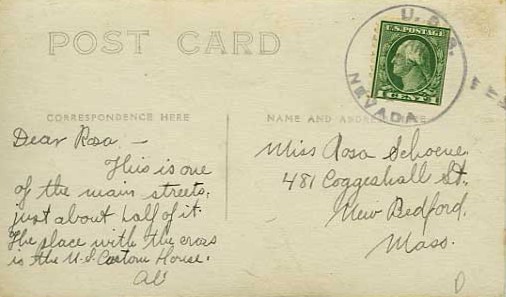 POST CARD
U.S.S.
NEVADA
U.S. POSTAGE
1 CENT 1
CORRESPONDENCE HERE
NAME AND ADDRESS HERE
Dear Rosa, —
This is one
of the main streets,
just about half of it.
The place with the cross
is the U.S. Custom House.
Al
Miss Rosa Schoene.
481 Coggeshall St.,
New Bedford,
Mass.